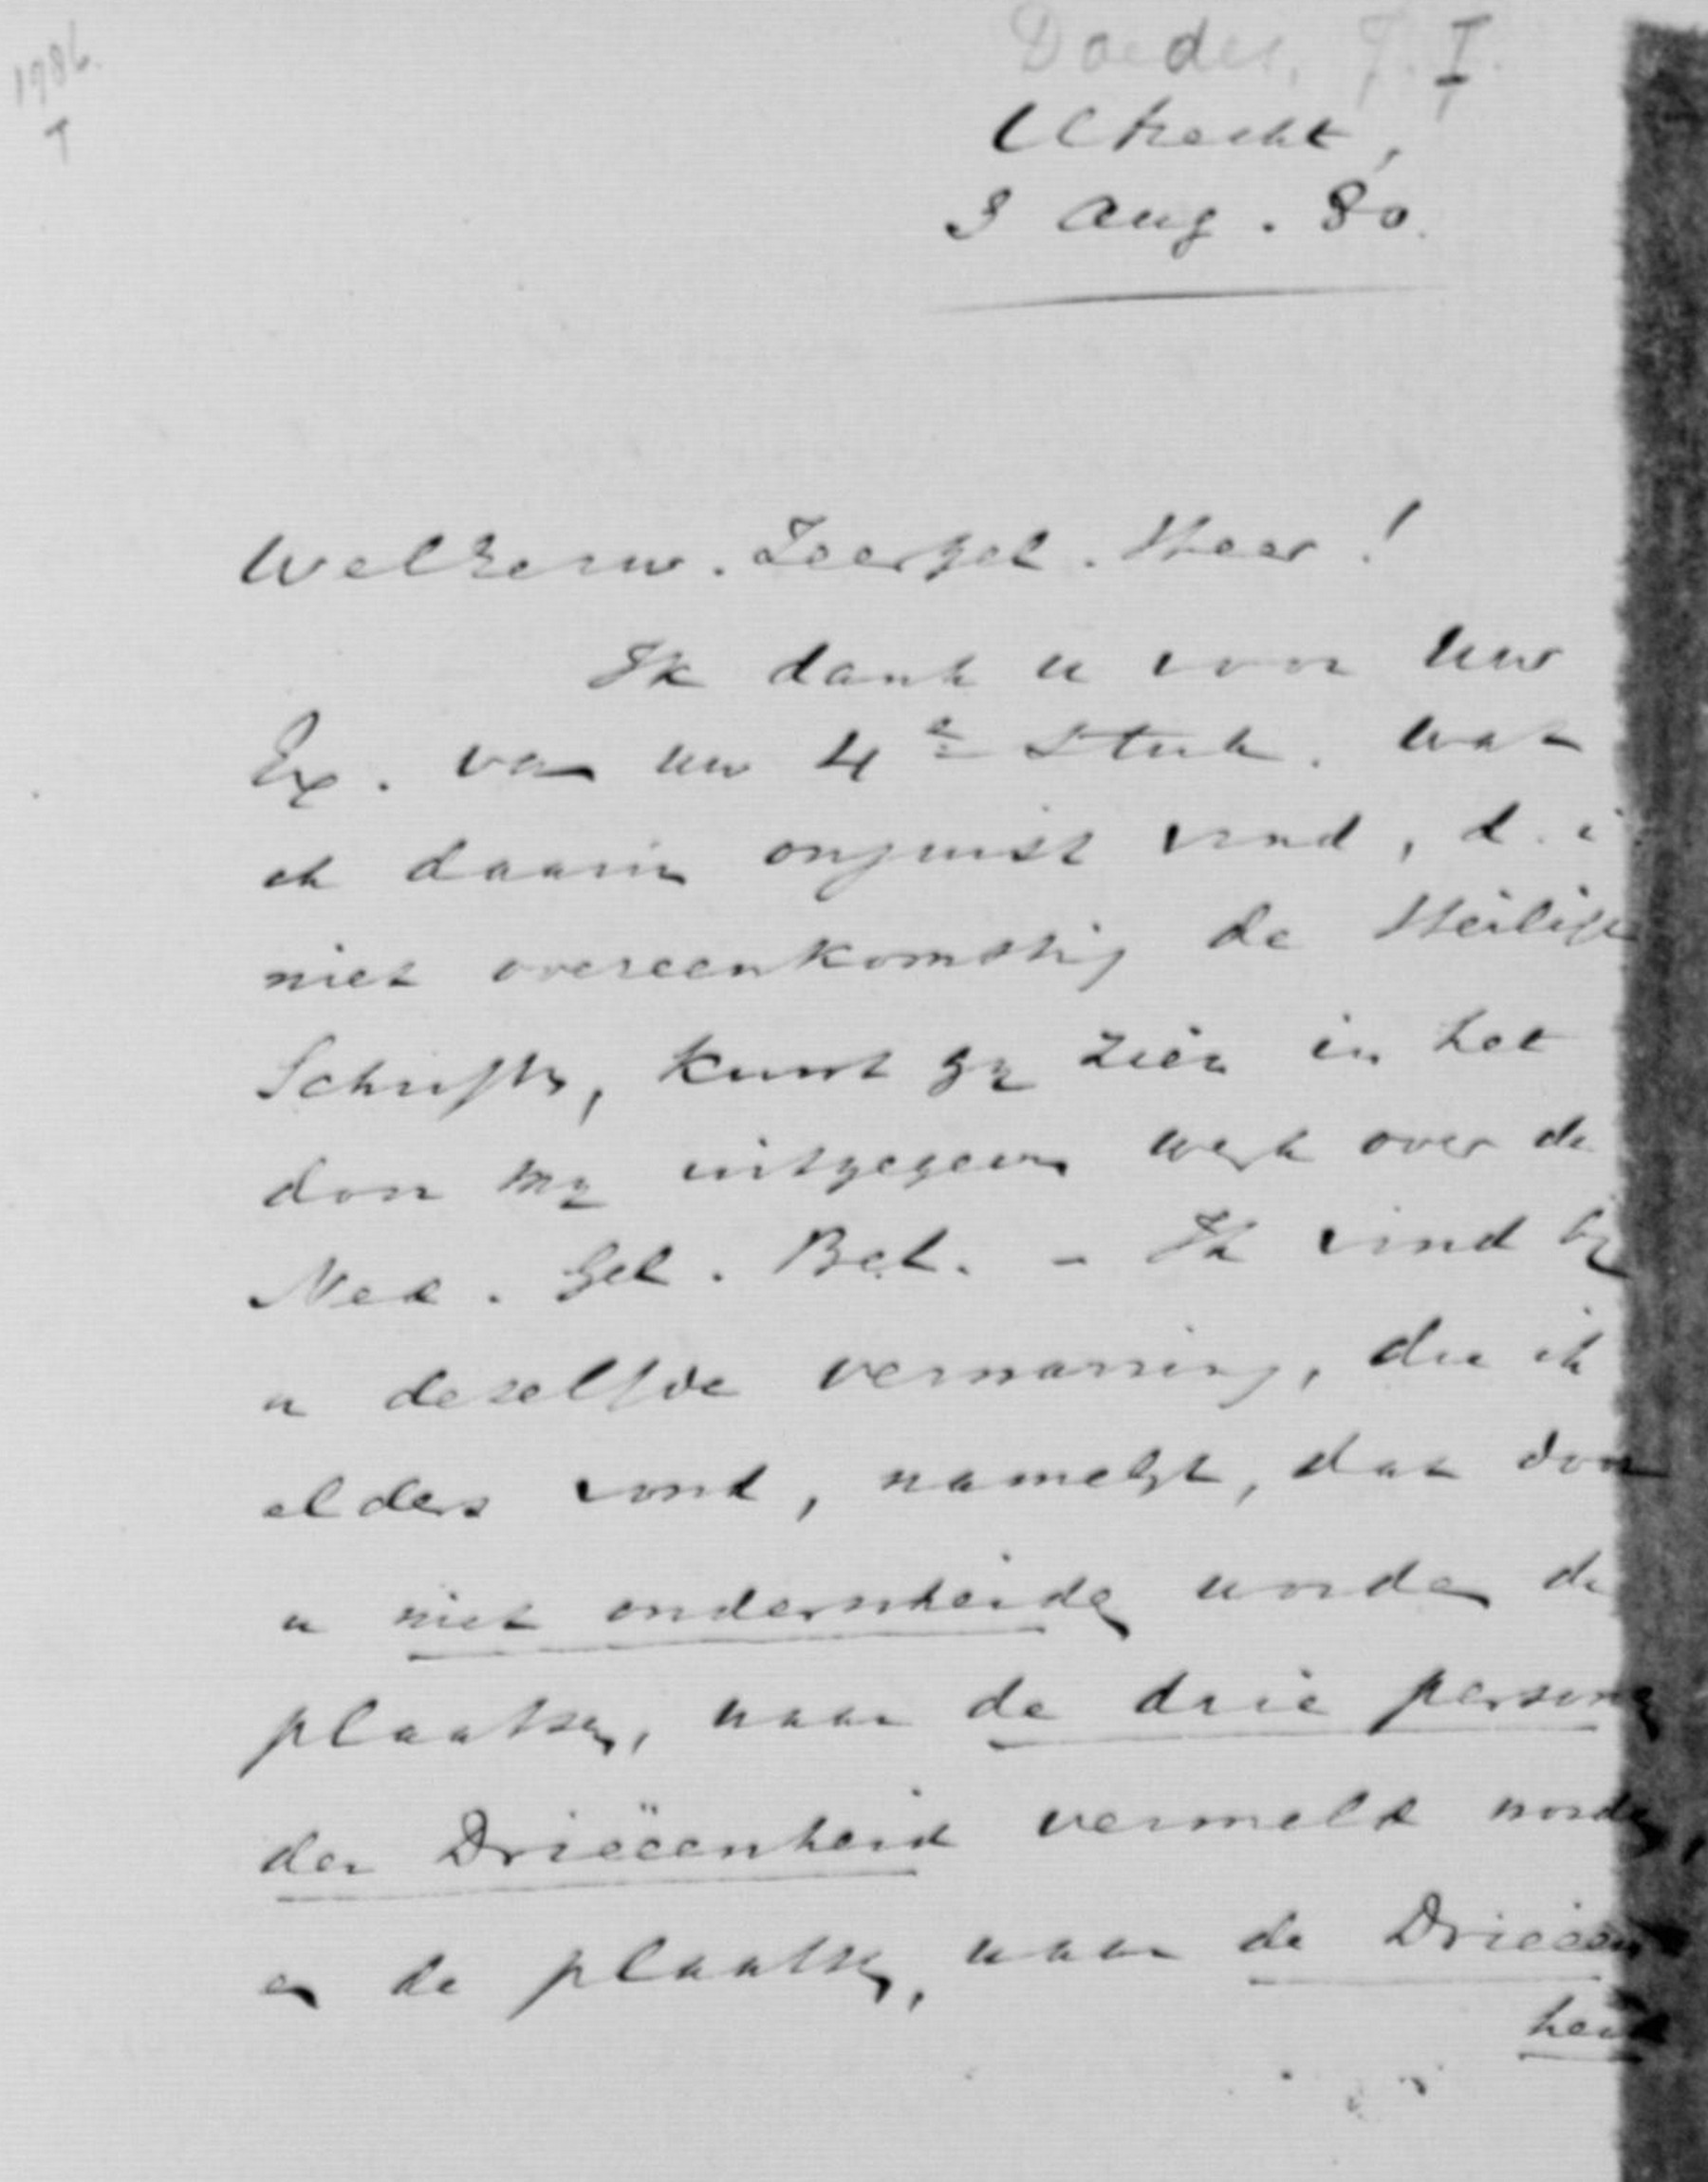 1986.
T
Doedes, J. I.
Utrecht,
3 Aug. 80.
WelEerw. Zeergel. Heer!
Ik dank u voor Uw
Ex. van uw 4e Stuk. Wat
ik daarin onjuist vind, d.i.
niet overeenkomstig de Heilige
Schriften, kunt gy zien in het
door my uitgegeven werk over de
Ned. Gel. Bel. - Ik vind by
u dezelfde verwarring, die ik
elders vond, namelyk, dat door
u niet onderscheiden worden de
plaatsen, waar de drie personen
der Drieëenheid vermeld worden,
en de plaatsen, waar de Drieëen
heid